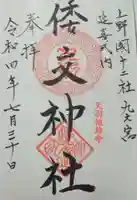 上野國十二社 九之宮
延喜式内
倭文神社
奉拝
令和四年七月三十日